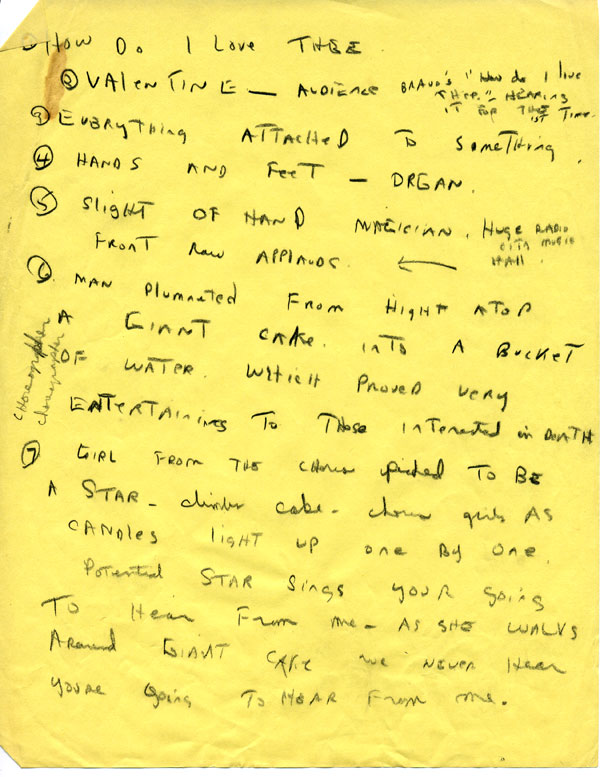 ① HOW DO I LOVE THEE.
② VALENTINE — AUDIENCE BRAVO'S "HOW do I love
THEE." HEARING
IT FOR THE
1ST TIME.
③ EVERYTHING ATTACHED TO SOMETHING.
④ HANDS AND FEET — ORGAN.
⑤ SlighT OF HAND MAGICIAN. HUGE RADIO
CITY MUSIC
HAll.
FRONT ROW APPLAUDS. ←
⑥ MAN PLUMMETED FROM HIGHT ATOP
A GIANT CAKE. INTO A BUCKET
OF WATER. WHICH PROVED VERY
ENTERTAINING TO THOSE INTERESTED in DEATH
choreographer
choreographer
⑦ GIRL FROM THE CHORUS picked TO BE
A STAR - climbs cake - chorus girls AS
CANDLES light UP ONE BY ONE.
Potential STAR Sings YOUR going
TO HEAR FROM me - AS SHE WALKS
AROUND GIANT CAKE WE NEVER HEAR
YOURE Going TO HEAR FROM me.